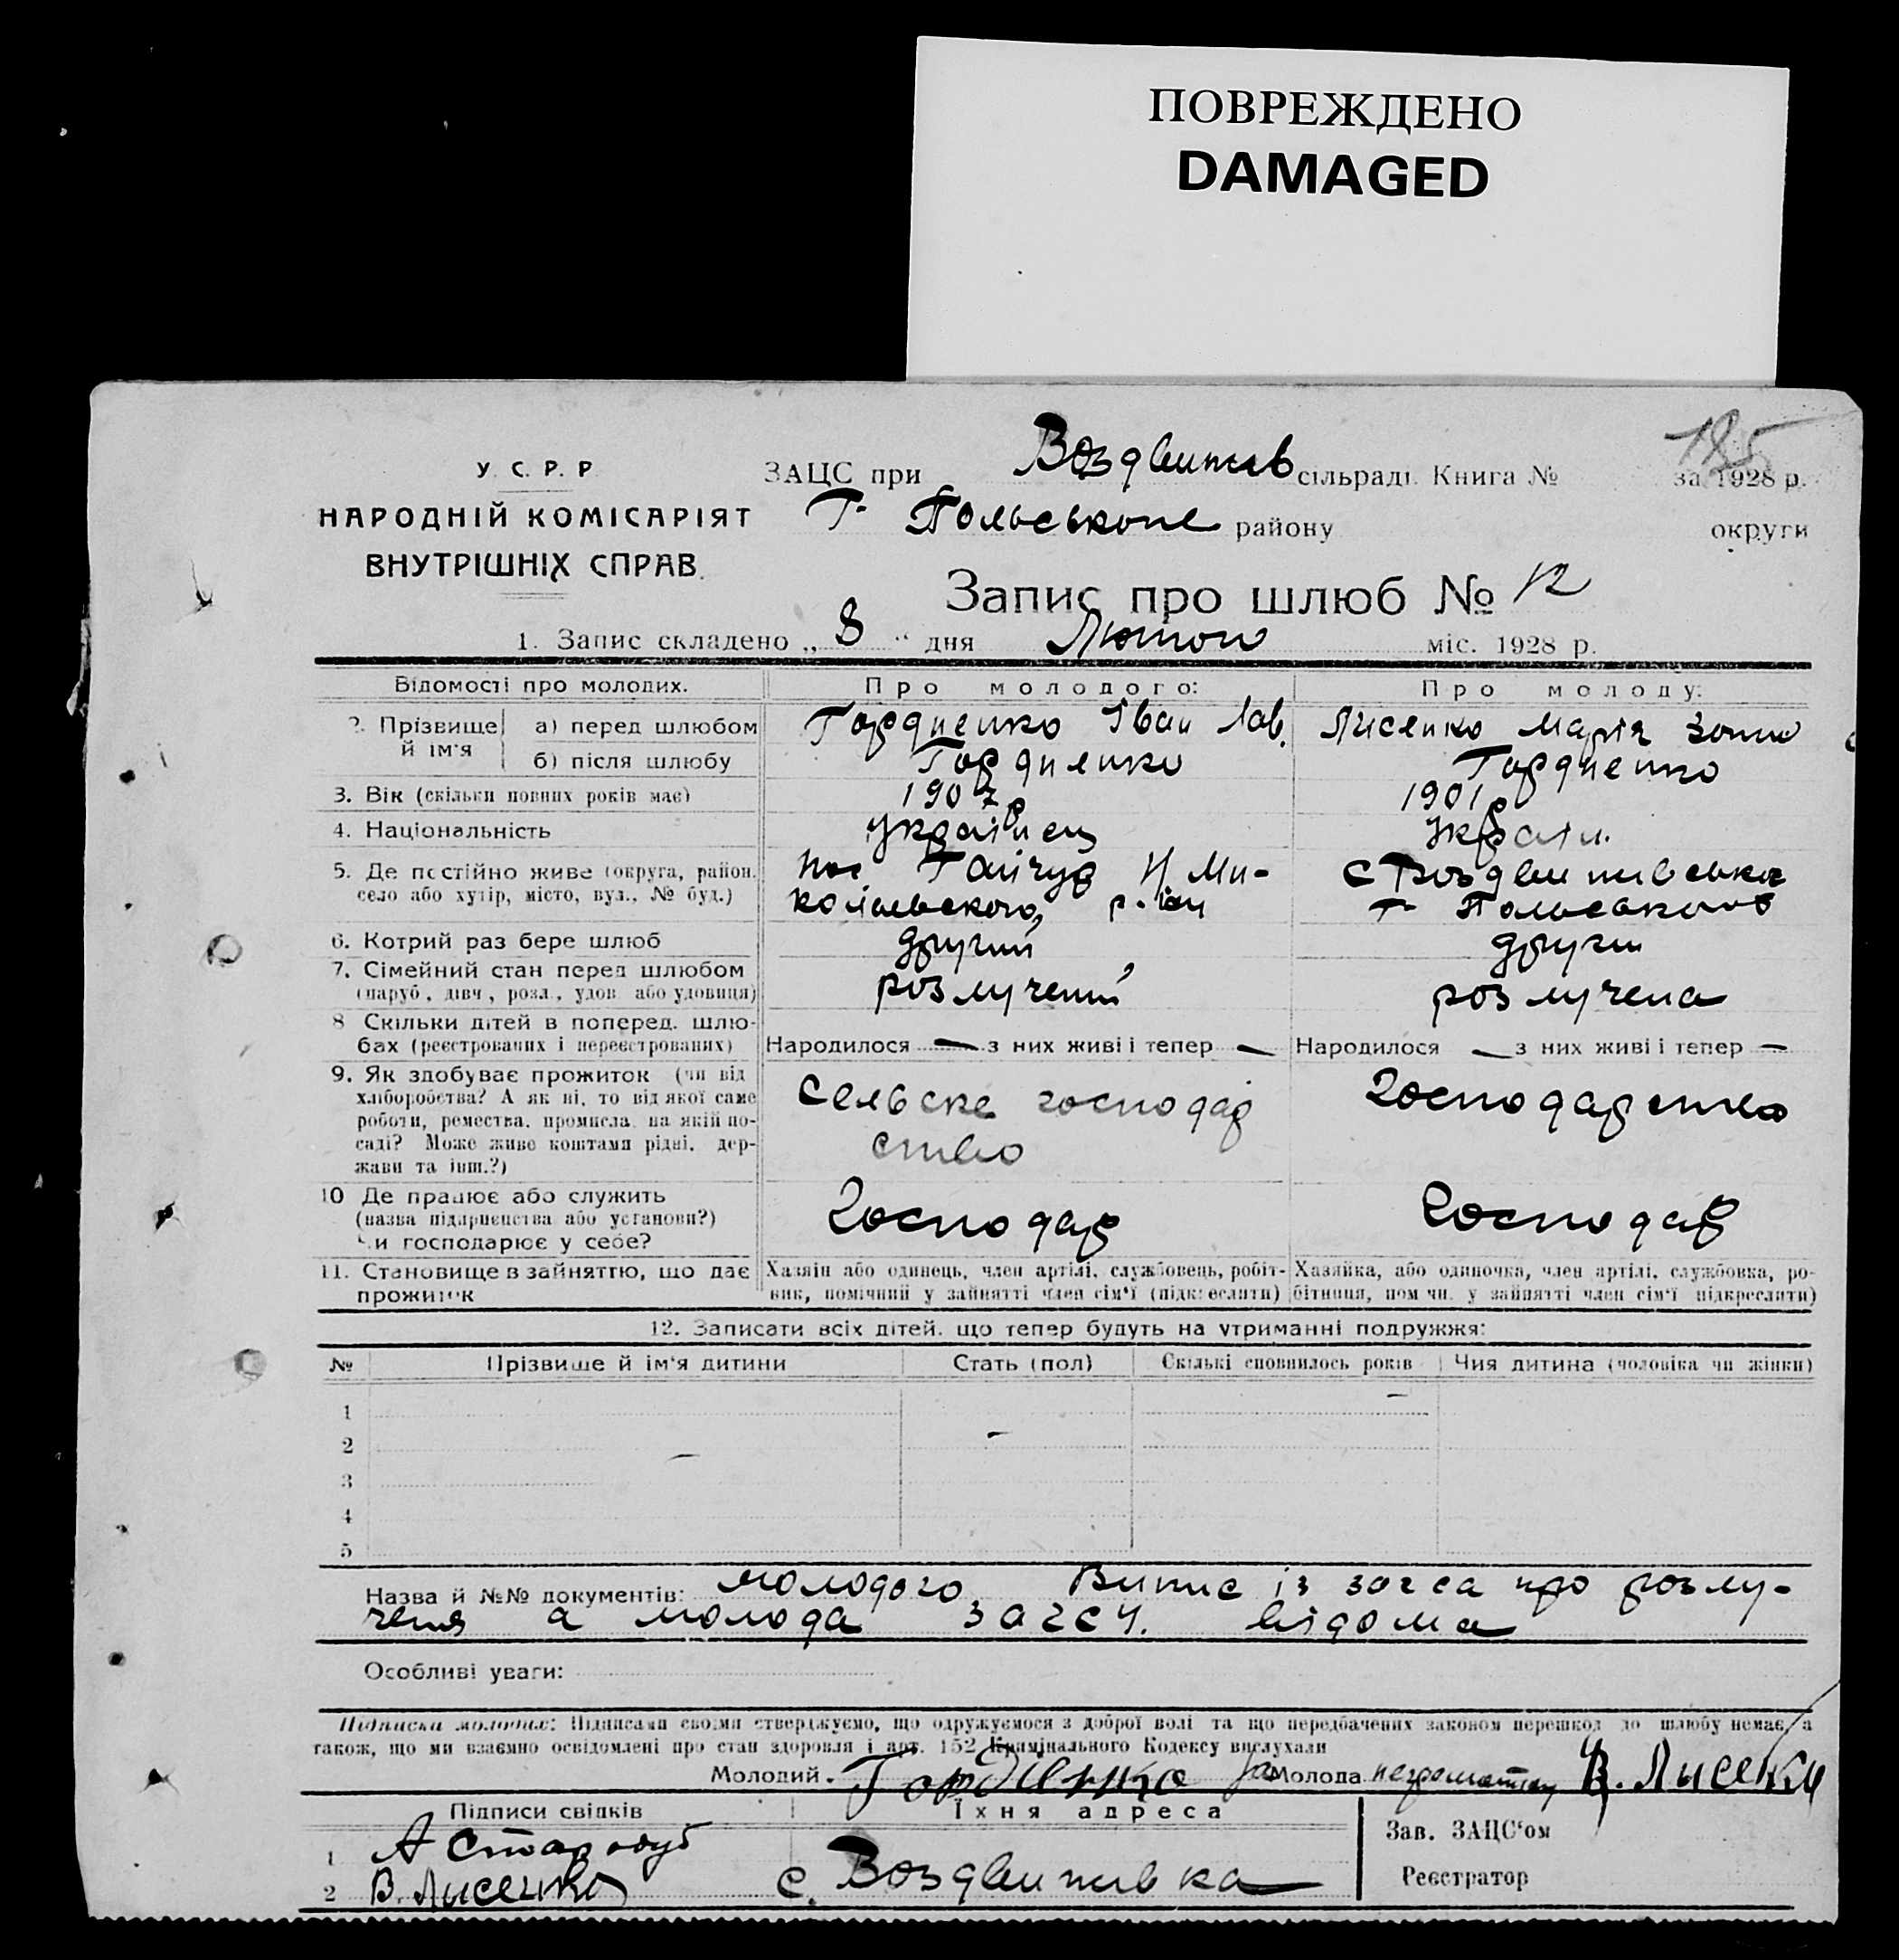 ПОВРЕЖДЕНО
DAMAGED
185
У. С. Р. Р.
НАРОДНІЙ КОМІСАРІЯТ
ВНУТРІШНІХ СПРАВ.
ЗАЦС при Воздвижив сільраді. Книга № за 1928 р.
Г- Польського району округи
Запис про шлюб № 12
1. Запис складено „ 8 “ дня Лютого міс. 1928 р.
Відомості про молодих. Про молодого: Про молоду:
2. Прізвище й ім'я а) перед шлюбом Гордиенко Іван Лав. Лисенко Марія
б) після шлюбу Гордиенко Гордиенко
3. Вік (скільки повних років має) 1907 р 1901 р
4. Національність українец Україн.
5. Де постійно живе (округа, район, Гайчур Н Ми- с Воздвиживська
село або хутір, місто, вул., № буд.) колаевского р. Г- Польського
6. Котрий раз бере шлюб другий други
7. Сімейний стан перед шлюбом розлучений розлучена
(паруб., дівч., розл., удов. або удовиця)
8 Скільки дітей в поперед. шлю-
бах (реєстрованих і нереєстрованих) Народилося — з них живі і тепер — Народилося — з них живі і тепер —
9. Як здобуває прожиток (чи від Сельске господар Господарство
хліборобства? А як ні, то від якої саме ство
роботи, ремества, промисла, на якій по-
саді? Може живе коштами рідні, дер-
жави та інш.?)
10 Де працює або служить Господар Господар
(назва підприємства або установи?)
Чи господарює у себе?
11. Становище в зайняттю, що дає Хазяїн або одинець, член артілі, службовець, робіт- Хазяйка, або одиночка, член артілі, службовка, ро-
прожиток ник, помічний у зайнятті член сім'ї (підкреслити) бітниця, пом чн. у зайнятті член сім'ї підкреслити)
12. Записати всіх дітей, що тепер будуть на утриманні подружжя:
№ Прізвише й ім'я дитини Стать (пол) Скількі сповнилось років Чия дитина (чоловіка чи жінки)
1 —
2 — —
3
4
5
Назва й №№ документів: молодого Випис із загса про розлу-
ченя а молода загсу. відома
Особливі уваги:
Підписка молодих: Підписами своїми стверджуємо, що одружуємося з доброї волі та що передбачених законом перешкод до шлюбу немає, а
також, що ми взаємно освідомлені про стан здоровля і арт. 152 Кримінального Кодексу вислухали
Молодий. Гордіенко Молода за неграмотну В. Лысенко
Підписи свідків Їхня адреса Зав. ЗАЦС'ом
1 А Стародуб
2 В. Лысенко с. Воздвижывка Реєстратор